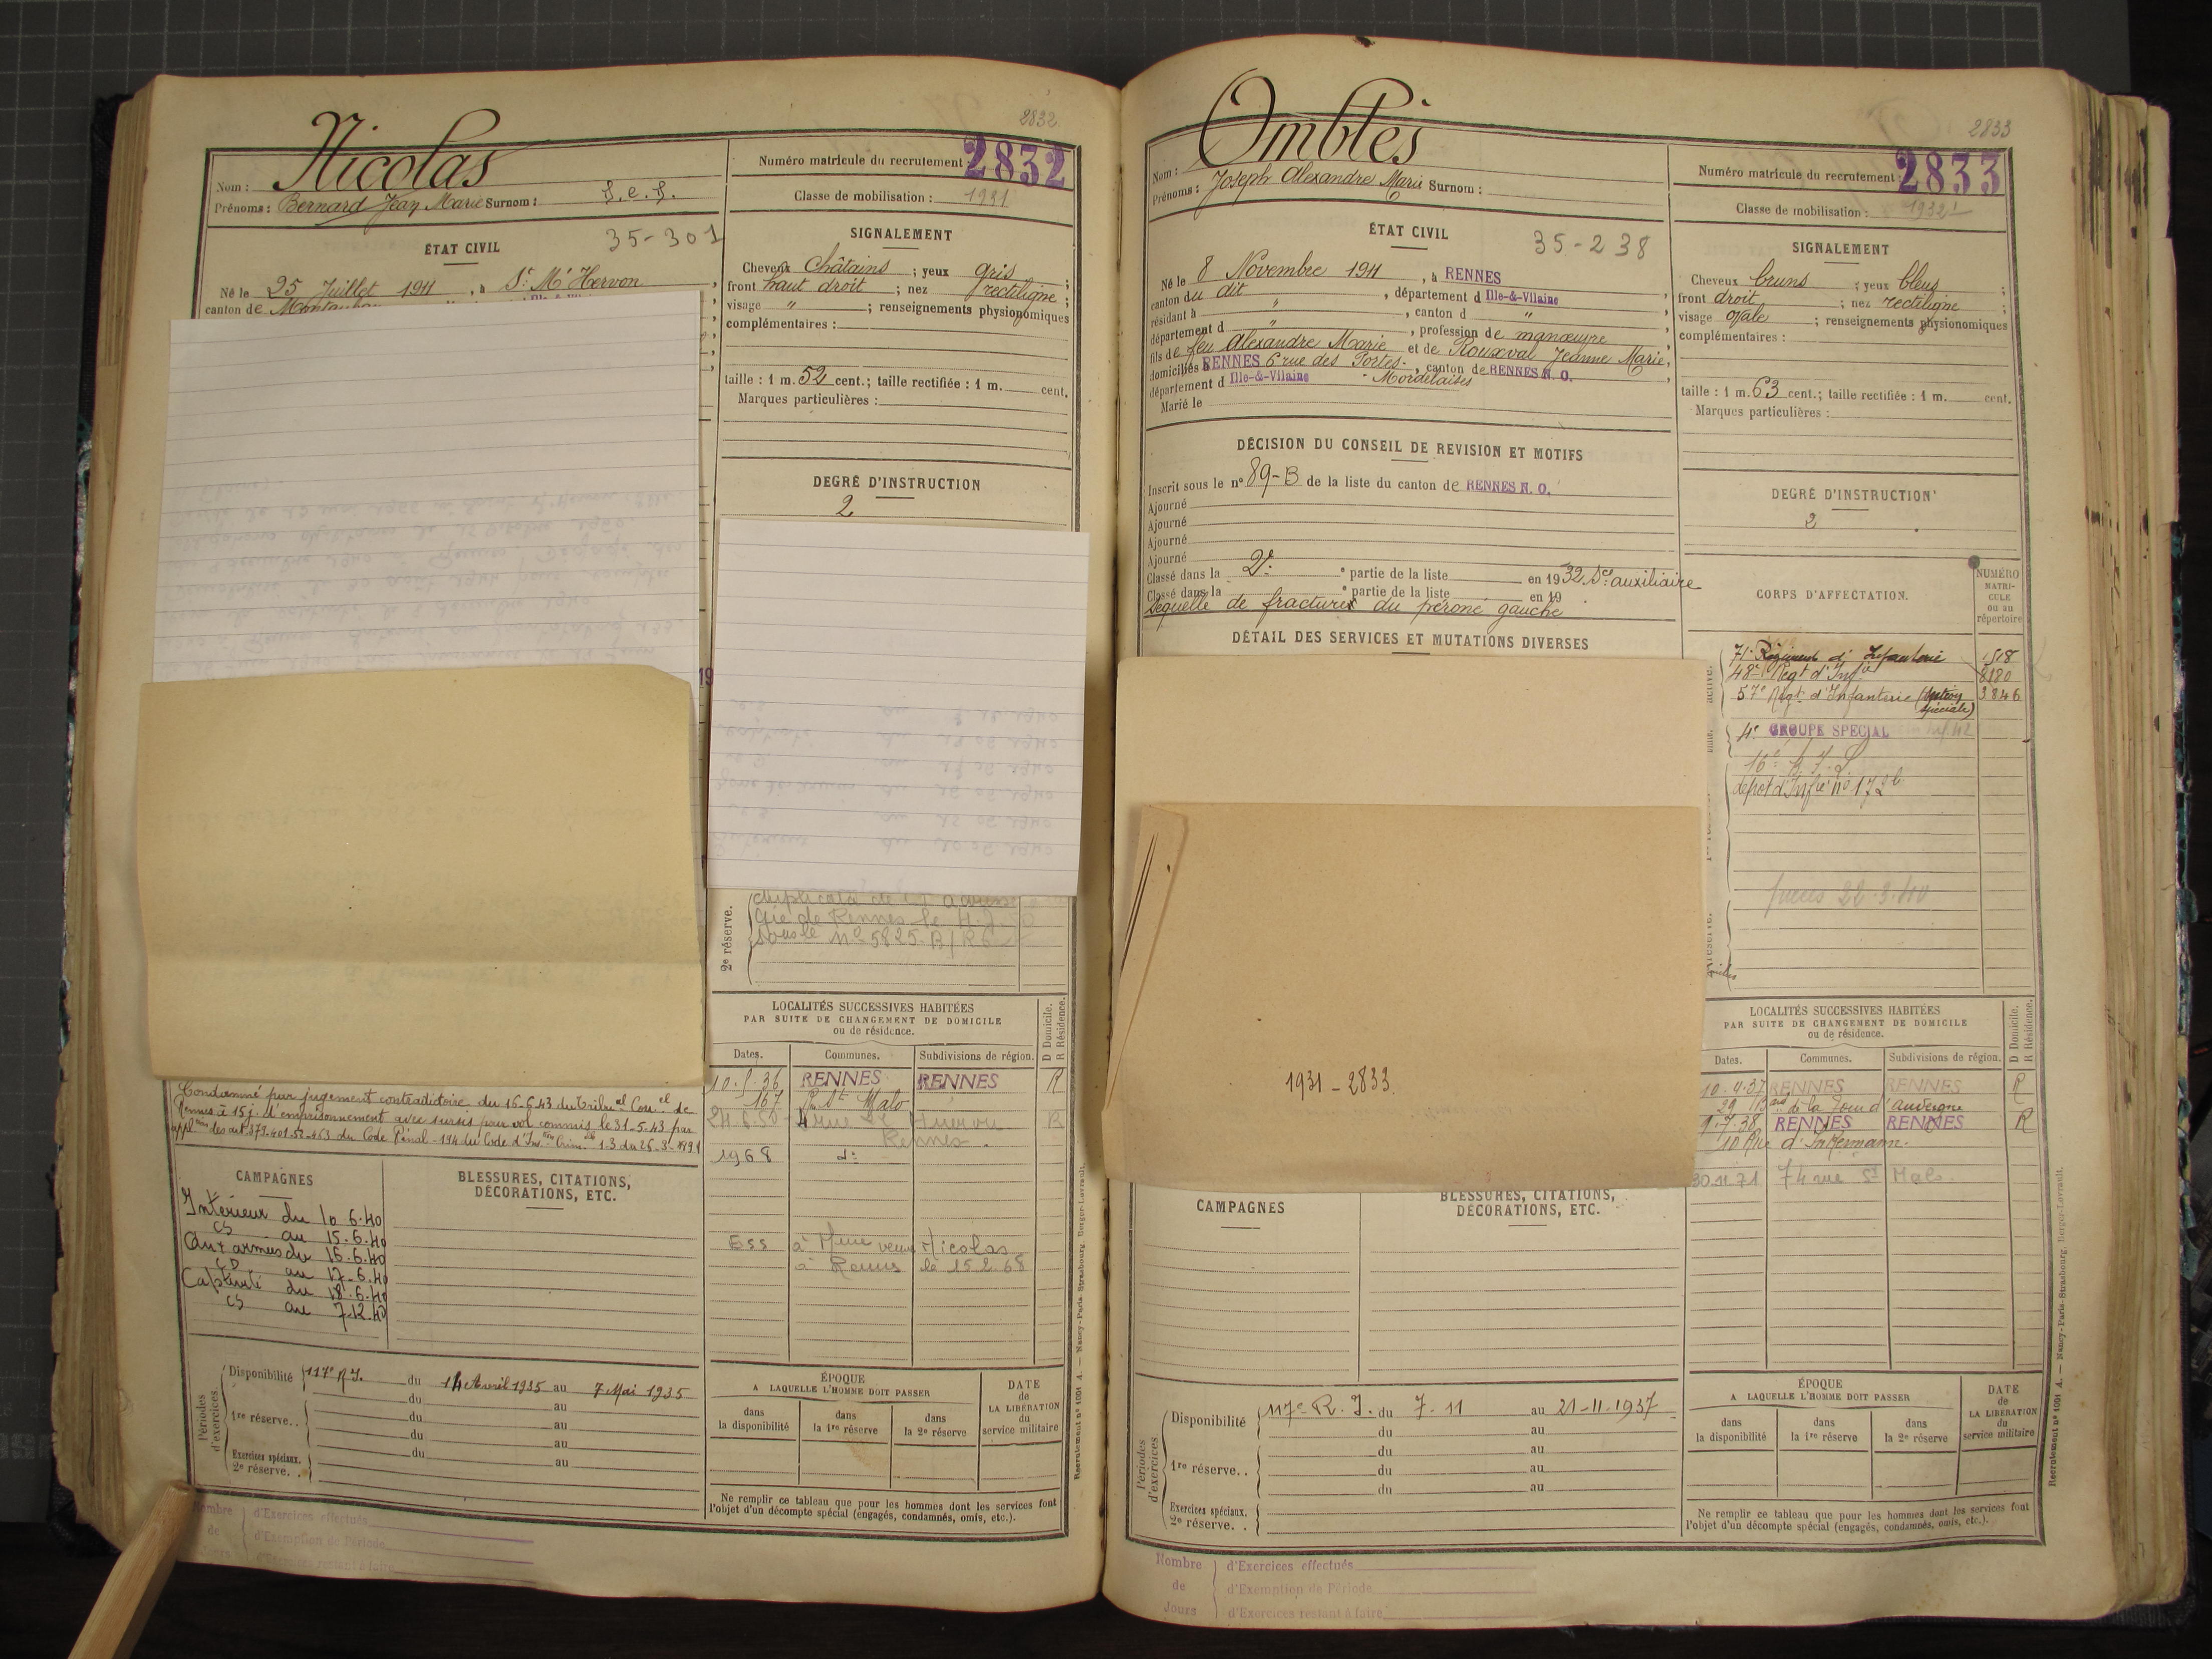 2832
Nicolas
Nom :
Prénoms : Bernard Jean Marie Surnom : S.e.S.
Numéro matricule du recrutement : 2832
Classe de mobilisation : 1931
ÉTAT CIVIL
35-301
Né le 25 Juillet 1911, à St Mt Hervon
canton de
SIGNALEMENT
Cheveux Châtains ; yeux gris ;
front haut droit ; nez rectiligne ;
visage " ; renseignements physionomiques
complémentaires :
taille : 1 m. 52 cent. ; taille rectifiée : 1 m. cent.
Marques particulières :
DEGRÉ D'INSTRUCTION
2
2e réserve.
Gie de Rennes le
sous le n° 5825-B/R6
LOCALITÉS SUCCESSIVES HABITÉES
PAR SUITE DE CHANGEMENT DE DOMICILE
ou de résidence.
D Domicile.
R Résidence.
Dates. Communes. Subdivisions de région.
10.5.36 RENNES RENNES R
167 R. St Malo
24.6.50 R
Rennes.
1968 do
à Mme veuve Nicolas
à Rennes le 15.2.68
Condamné par jugement contradictoire du 16-6-43 du Tribunal Couel de
Rennes à 15 j. d'emprisonnement avec sursis pour vol commis le 31-5-43 par
applon des art 379-401-52-463 du Code Pénal-194 du Code d'Ins. Crim. 1.3 du 26-3-1891
CAMPAGNES
BLESSURES, CITATIONS,
DÉCORATIONS, ETC.
Intérieur du 10.6.40
CS au 15.6.40
Aux armées du 16.6.40
CD au 17.6.40
Captivité du 18.6.40
CS au 7.12.40
Périodes d'exercices.
Disponibilité 117e R.I. du 14 Avril 1935 au 7 Mai 1935
du au
1re réserve.. du au
du au
Exercices spéciaux. du au
2e réserve. .
ÉPOQUE
A LAQUELLE L'HOMME DOIT PASSER
dans la disponibilité
dans la 1re réserve
dans la 2e réserve
DATE
de
LA LIBÉRATION
du
service militaire
Ne remplir ce tableau que pour les hommes dont les services font
l'objet d'un décompte spécial (engagés, condamnés, omis, etc.).
Recrutement n° 1001 A. — Nancy-Paris-Strasbourg, Berger-Levrault.
Nombre de Jours
d'Exercices effectués
d'Exemption de Période
d'Exercices restant à faire
2833
Ombles
Nom :
Prénoms : Joseph Alexandre Marie Surnom :
Numéro matricule du recrutement : 2833
Classe de mobilisation : 1932
ÉTAT CIVIL
35-238
Né le 8 Novembre 1911, à RENNES
canton du dit, département d Ille-&-Vilaine,
résidant à ", canton d ",
département d ", profession de manœuvre,
fils de feu Alexandre Marie et de Rouxval Jeanne Marie,
domiciliés à RENNES 6 rue des Portes, canton de RENNES N. O.,
département d Ille-&-Vilaine - Mordelaises
Marié le
SIGNALEMENT
Cheveux bruns ; yeux bleus ;
front droit ; nez rectiligne ;
visage ovale ; renseignements physionomiques
complémentaires :
taille : 1 m. 63 cent. ; taille rectifiée : 1 m. cent.
Marques particulières :
DÉCISION DU CONSEIL DE REVISION ET MOTIFS
Inscrit sous le n° 89-B de la liste du canton de RENNES N. O.
Ajourné
Ajourné
Ajourné
Ajourné
Classé dans la 2e e partie de la liste en 1932 Sce auxiliaire
Classé dans la e partie de la liste en 19
Sequelle de fracture du péroné gauche
DÉTAIL DES SERVICES ET MUTATIONS DIVERSES
DEGRÉ D'INSTRUCTION
2
CORPS D'AFFECTATION.
NUMÉRO
MATRI-
CULE
ou au
répertoire
71e Régiment d'Infanterie 1518
48e Régt d'Infie 8180
57e Régt d'Infanterie (Section spéciale) 3846
4e GROUPE SPECIAL
dépôt d'Infie n° 172
1931 - 2833
LOCALITÉS SUCCESSIVES HABITÉES
PAR SUITE DE CHANGEMENT DE DOMICILE
ou de résidence.
D Domicile.
R Résidence.
Dates. Communes. Subdivisions de région.
10-4-37 RENNES RENNES R
29 Bard de la Tour d'Auvergne
9.7.38 RENNES RENNES R
10 Rue d'Inkermann.
30.11.71 74 rue St Malo.
CAMPAGNES
BLESSURES, CITATIONS,
DÉCORATIONS, ETC.
Périodes d'exercices
Disponibilité 117e R. I. du 7-11 au 21-11-1937
du au
du au
1re réserve.. du au
du au
Exercices spéciaux.
2e réserve. .
ÉPOQUE
A LAQUELLE L'HOMME DOIT PASSER
dans la disponibilité
dans la 1re réserve
dans la 2e réserve
DATE
de
LA LIBÉRATION
du
service militaire
Ne remplir ce tableau que pour les hommes dont les services font
l'objet d'un décompte spécial (engagés, condamnés, omis, etc.).
Recrutement n° 1001 A. — Nancy-Paris-Strasbourg, Berger-Levrault.
Nombre de Jours
d'Exercices effectués
d'Exemption de Période
d'Exercices restant à faire